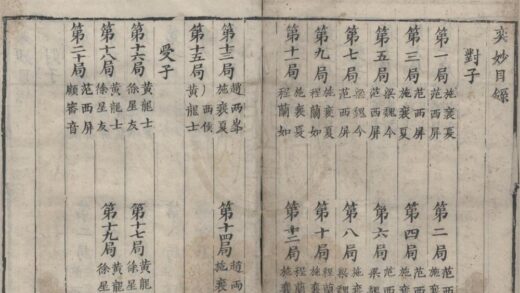 奕妙目錄
對子
第一局 施襄夏 范西屏
第二局 范西
第三局 施襄夏 范西屏
第四局 范西 施襄
第五局 梁魏今 范西屏
第六局 范西 梁魏
第七局 施襄夏 梁魏今
第八局 施襄 梁魏
第九局 施襄夏 程蘭如
第十局 施襄 程蘭
第十一局 施襄夏 程蘭如
第十二局 程蘭 施襄
第十三局 趙兩峯 施襄夏
第十四局 趙兩 施襄
第十五局 西侯 黃龍士
受子
第十六局 黃龍士 徐星友
第十七局 黃龍 徐星
第十八局 黃龍士 徐星友
第十九局 黃龍 徐星
第二十局 范西屏 顧審音